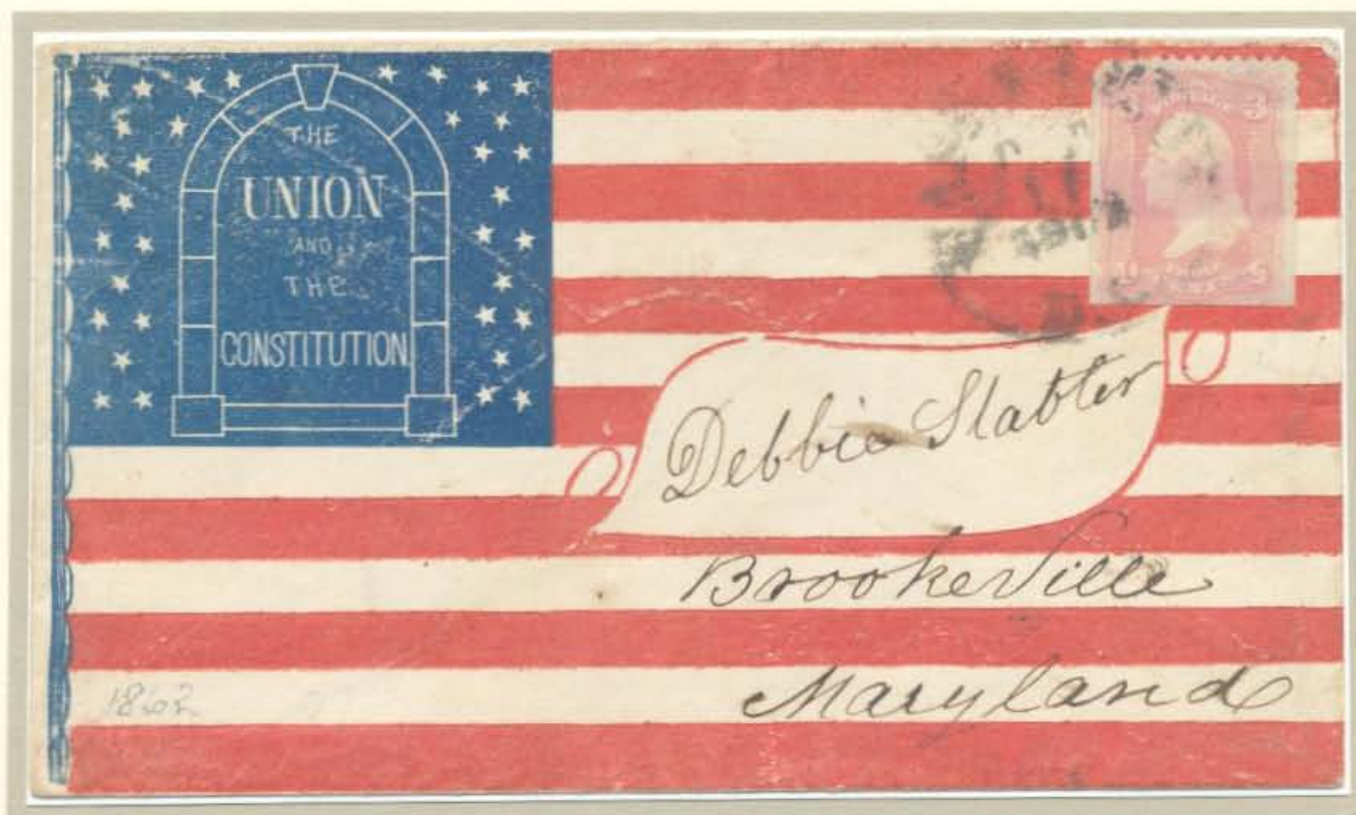 THE
UNION
AND
THE
CONSTITUTION
3
U S
Debbie Stabler
BrookeVille
Maryland
1862